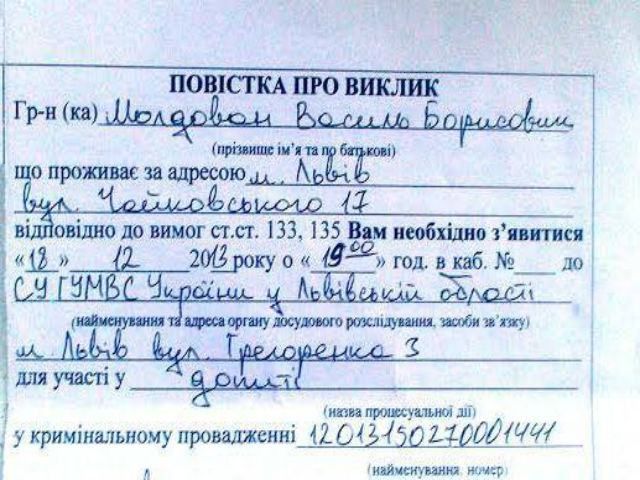 ПОВІСТКА ПРО ВИКЛИК
Гр-н (ка) Молдован Василь Борисович
(прізвище ім’я та по батькові)
що проживає за адресою м. Львів
вул. Чайковського 17
відповідно до вимог ст.ст. 133, 135 Вам необхідно з’явитися
«18» 12 2013 року о «19 00» год. в каб. №____ до
СУ ГУМВС України у Львівській області
(найменування та адреса органу досудового розслідування, засоби зв’язку)
м. Львів вул. Григоренка 3
для участі у допиті
(назва процесуальної дії)
у кримінальному провадженні 12013150270001441
(найменування, номер)